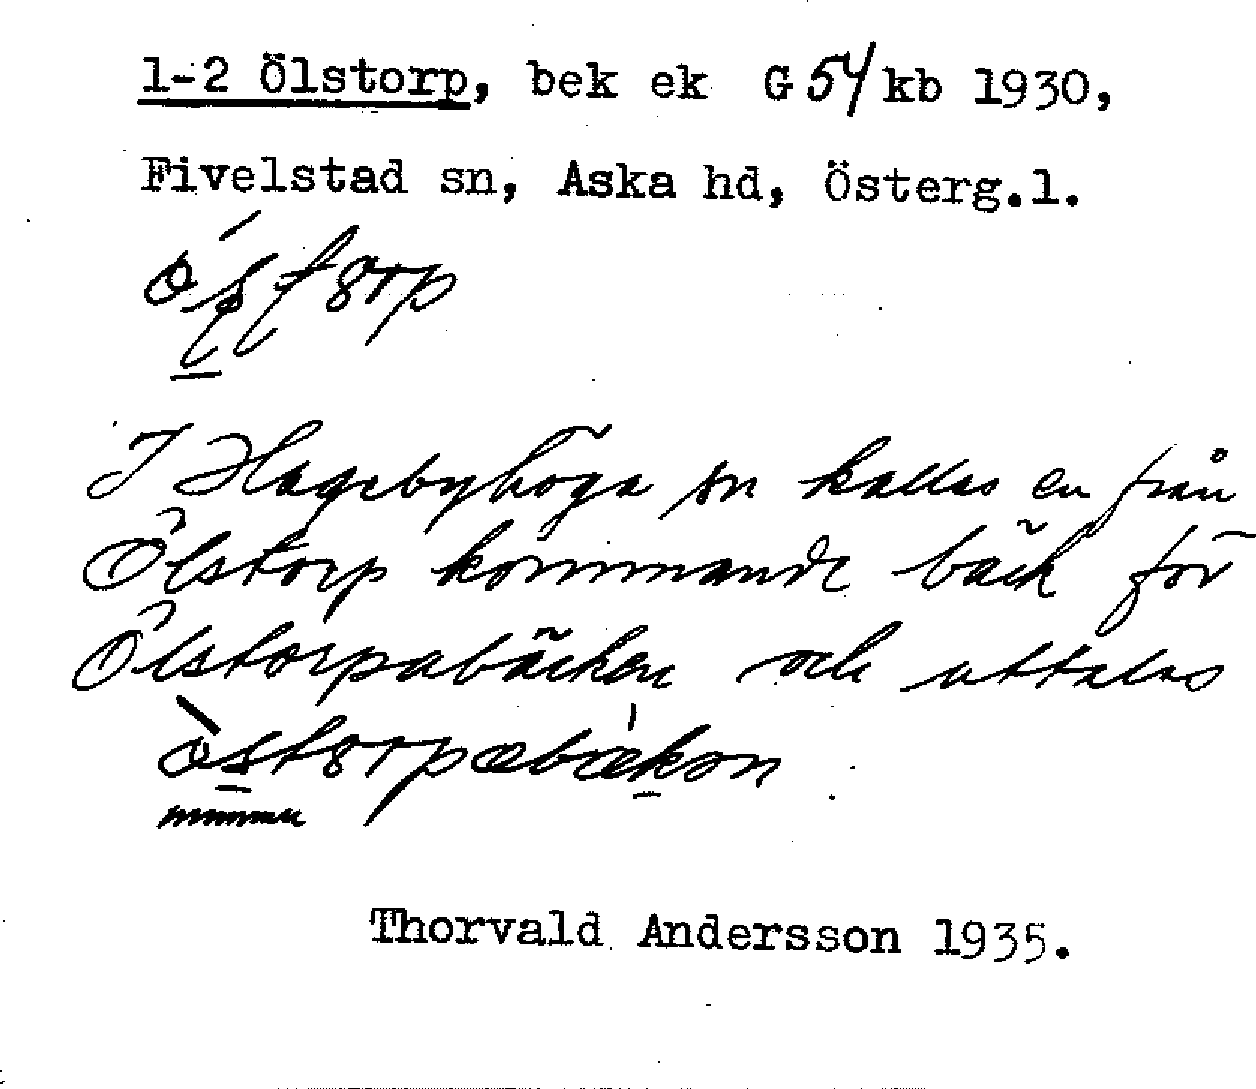 1-2 Ölstorp, bek ek G 54/ kb 1930,
Fivelstad sn, Aska hd, österg.l.
I Hagebyhöga sn kallas en från
Ölstorp kommande bäck för
Ölstorpabäcken och uttalas
Thorvald Andersson 1935.